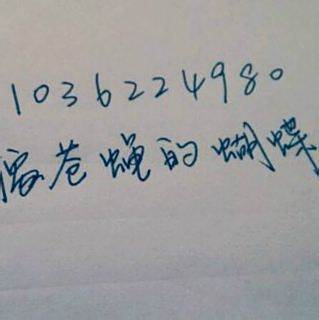 1036224980
苍蝇的蝴蝶